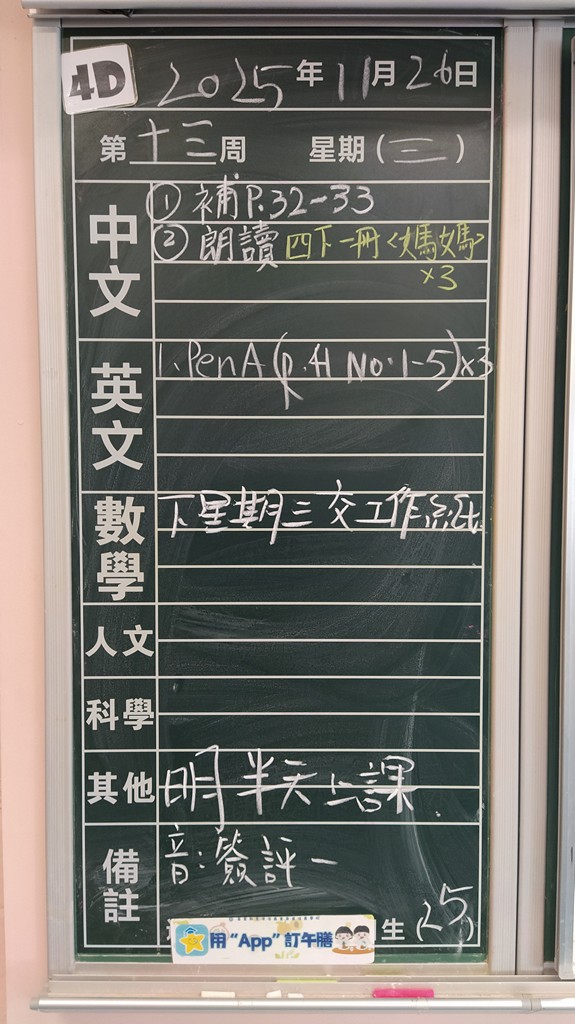 4D
2025年11月26日
第十三周 星期(三)
中文
① 補P.32-33
② 朗讀 四下一冊<媽媽>
×3
英文
1. Pen A (p.41 No.1-5)×3
數學
下星期三交工作紙
人文
科學
其他
明半天上課
備註
音:簽評一
用“App”訂午膳
生(25)